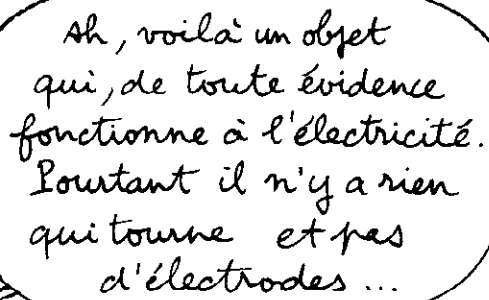 Ah, voilà un objet
qui, de toute évidence
fonctionne à l'électricité.
Pourtant il n'y a rien
qui tourne et pas
d'électrodes ...